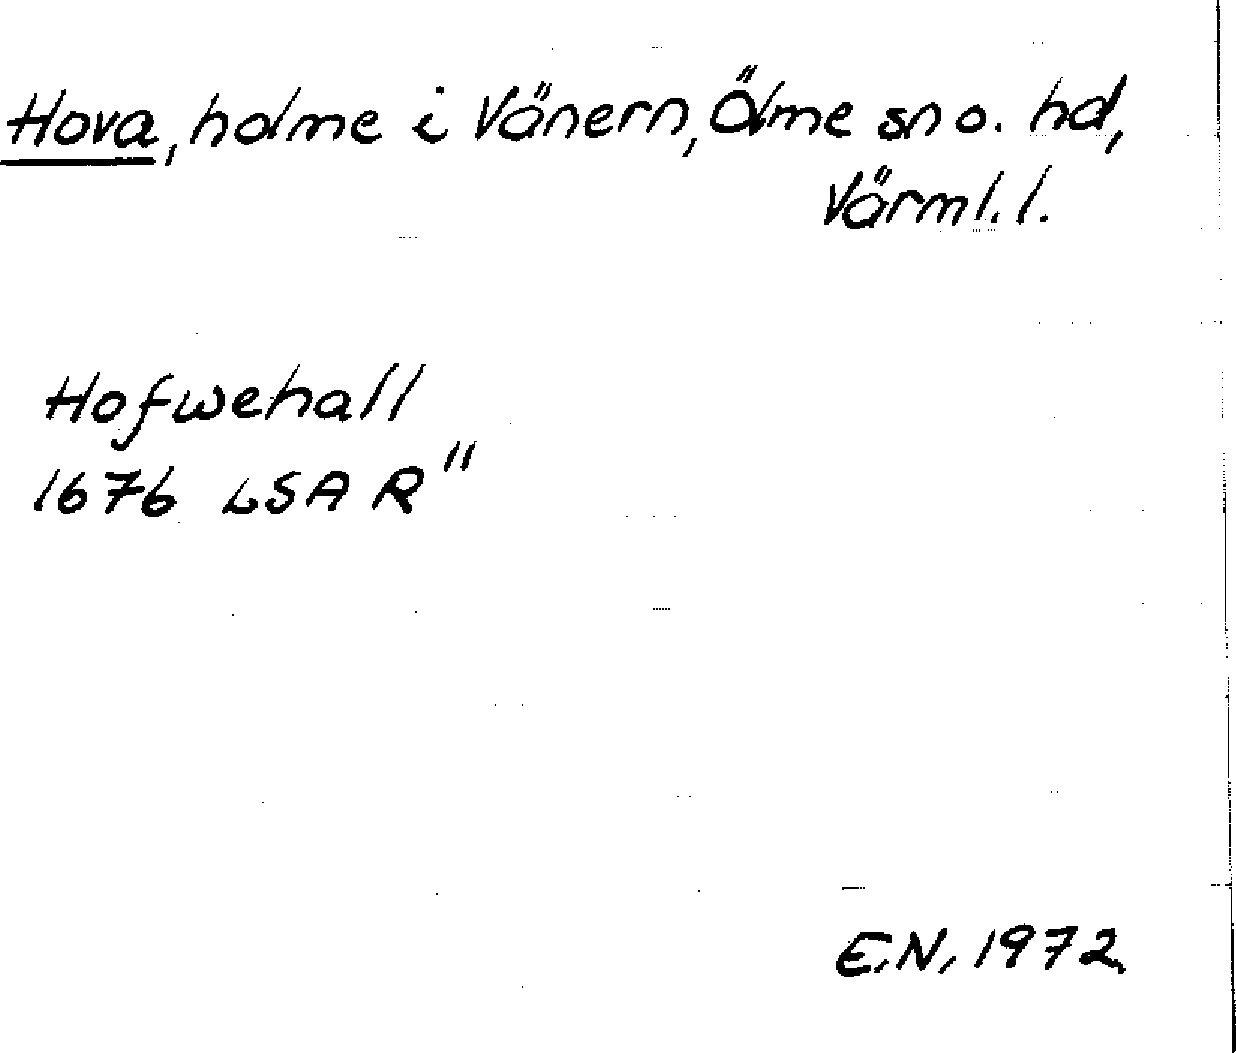 Hova, holme i Vänern, Ölme sn o. hd,
Värml. l.
Hofwehall
1676 LSA R"
E.N. 1972